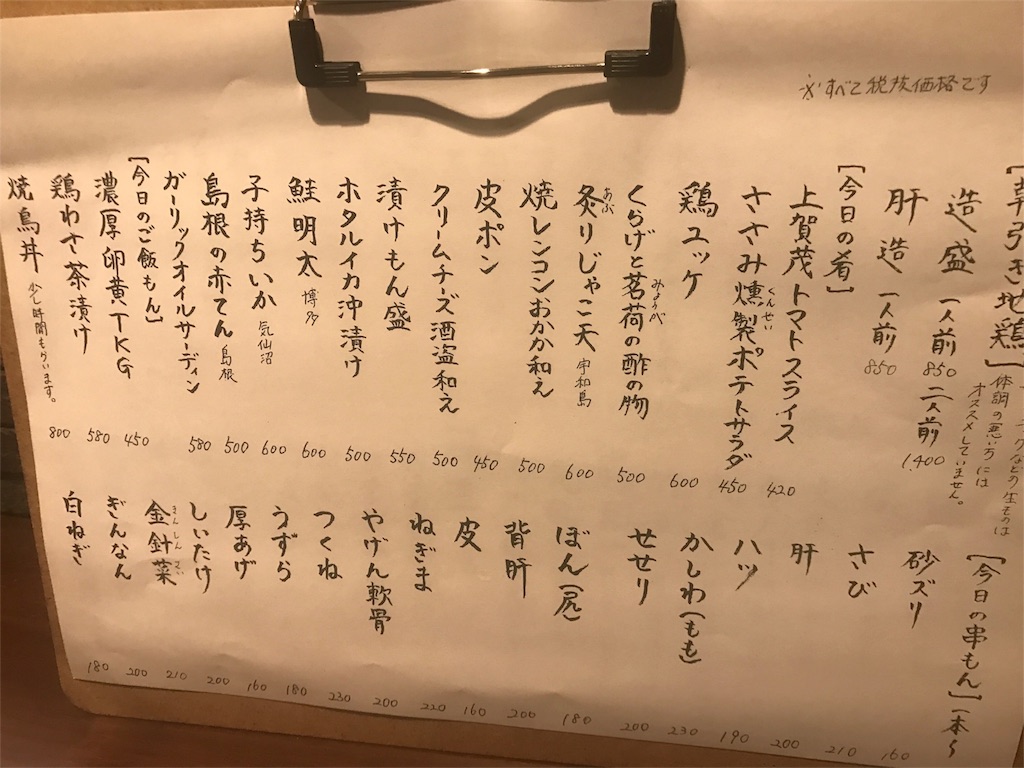 ※すべて税抜価格です
体調の悪い方には
オススメしていません。
造盛 一人前 850 二人前 1,400
肝造 一人前 850
[今日の肴]
上賀茂トマトスライス 420
ささみ燻製ポテトサラダ 450
くんせい
鶏ユッケ 600
くらげと茗荷の酢の物 500
炙りじゃこ天 宇和島 600
あぶ
焼レンコンおかか和え 500
皮ポン 450
クリームチーズ酒盗和え 500
漬けもん盛 550
ホタルイカ沖漬け 500
鮭明太 博多 600
子持ちいか 気仙沼 600
島根の赤てん 島根 500
ガーリックオイルサーディン 580
[今日のご飯もん]
濃厚卵黄TKG 450
鶏わさ茶漬け 580
焼鳥丼 少し時間もらいます。 800
[今日の串もん]一本〜
砂ズリ 160
さび 210
肝 200
ハツ 190
かしわ(もも) 230
せせり 200
ぼん(尻) 180
背肝 200
皮 160
ねぎま 220
やげん軟骨 200
つくね 230
うずら 180
厚あげ 160
しいたけ 200
金針菜 210
きんしんさい
ぎんなん 200
白ねぎ 180